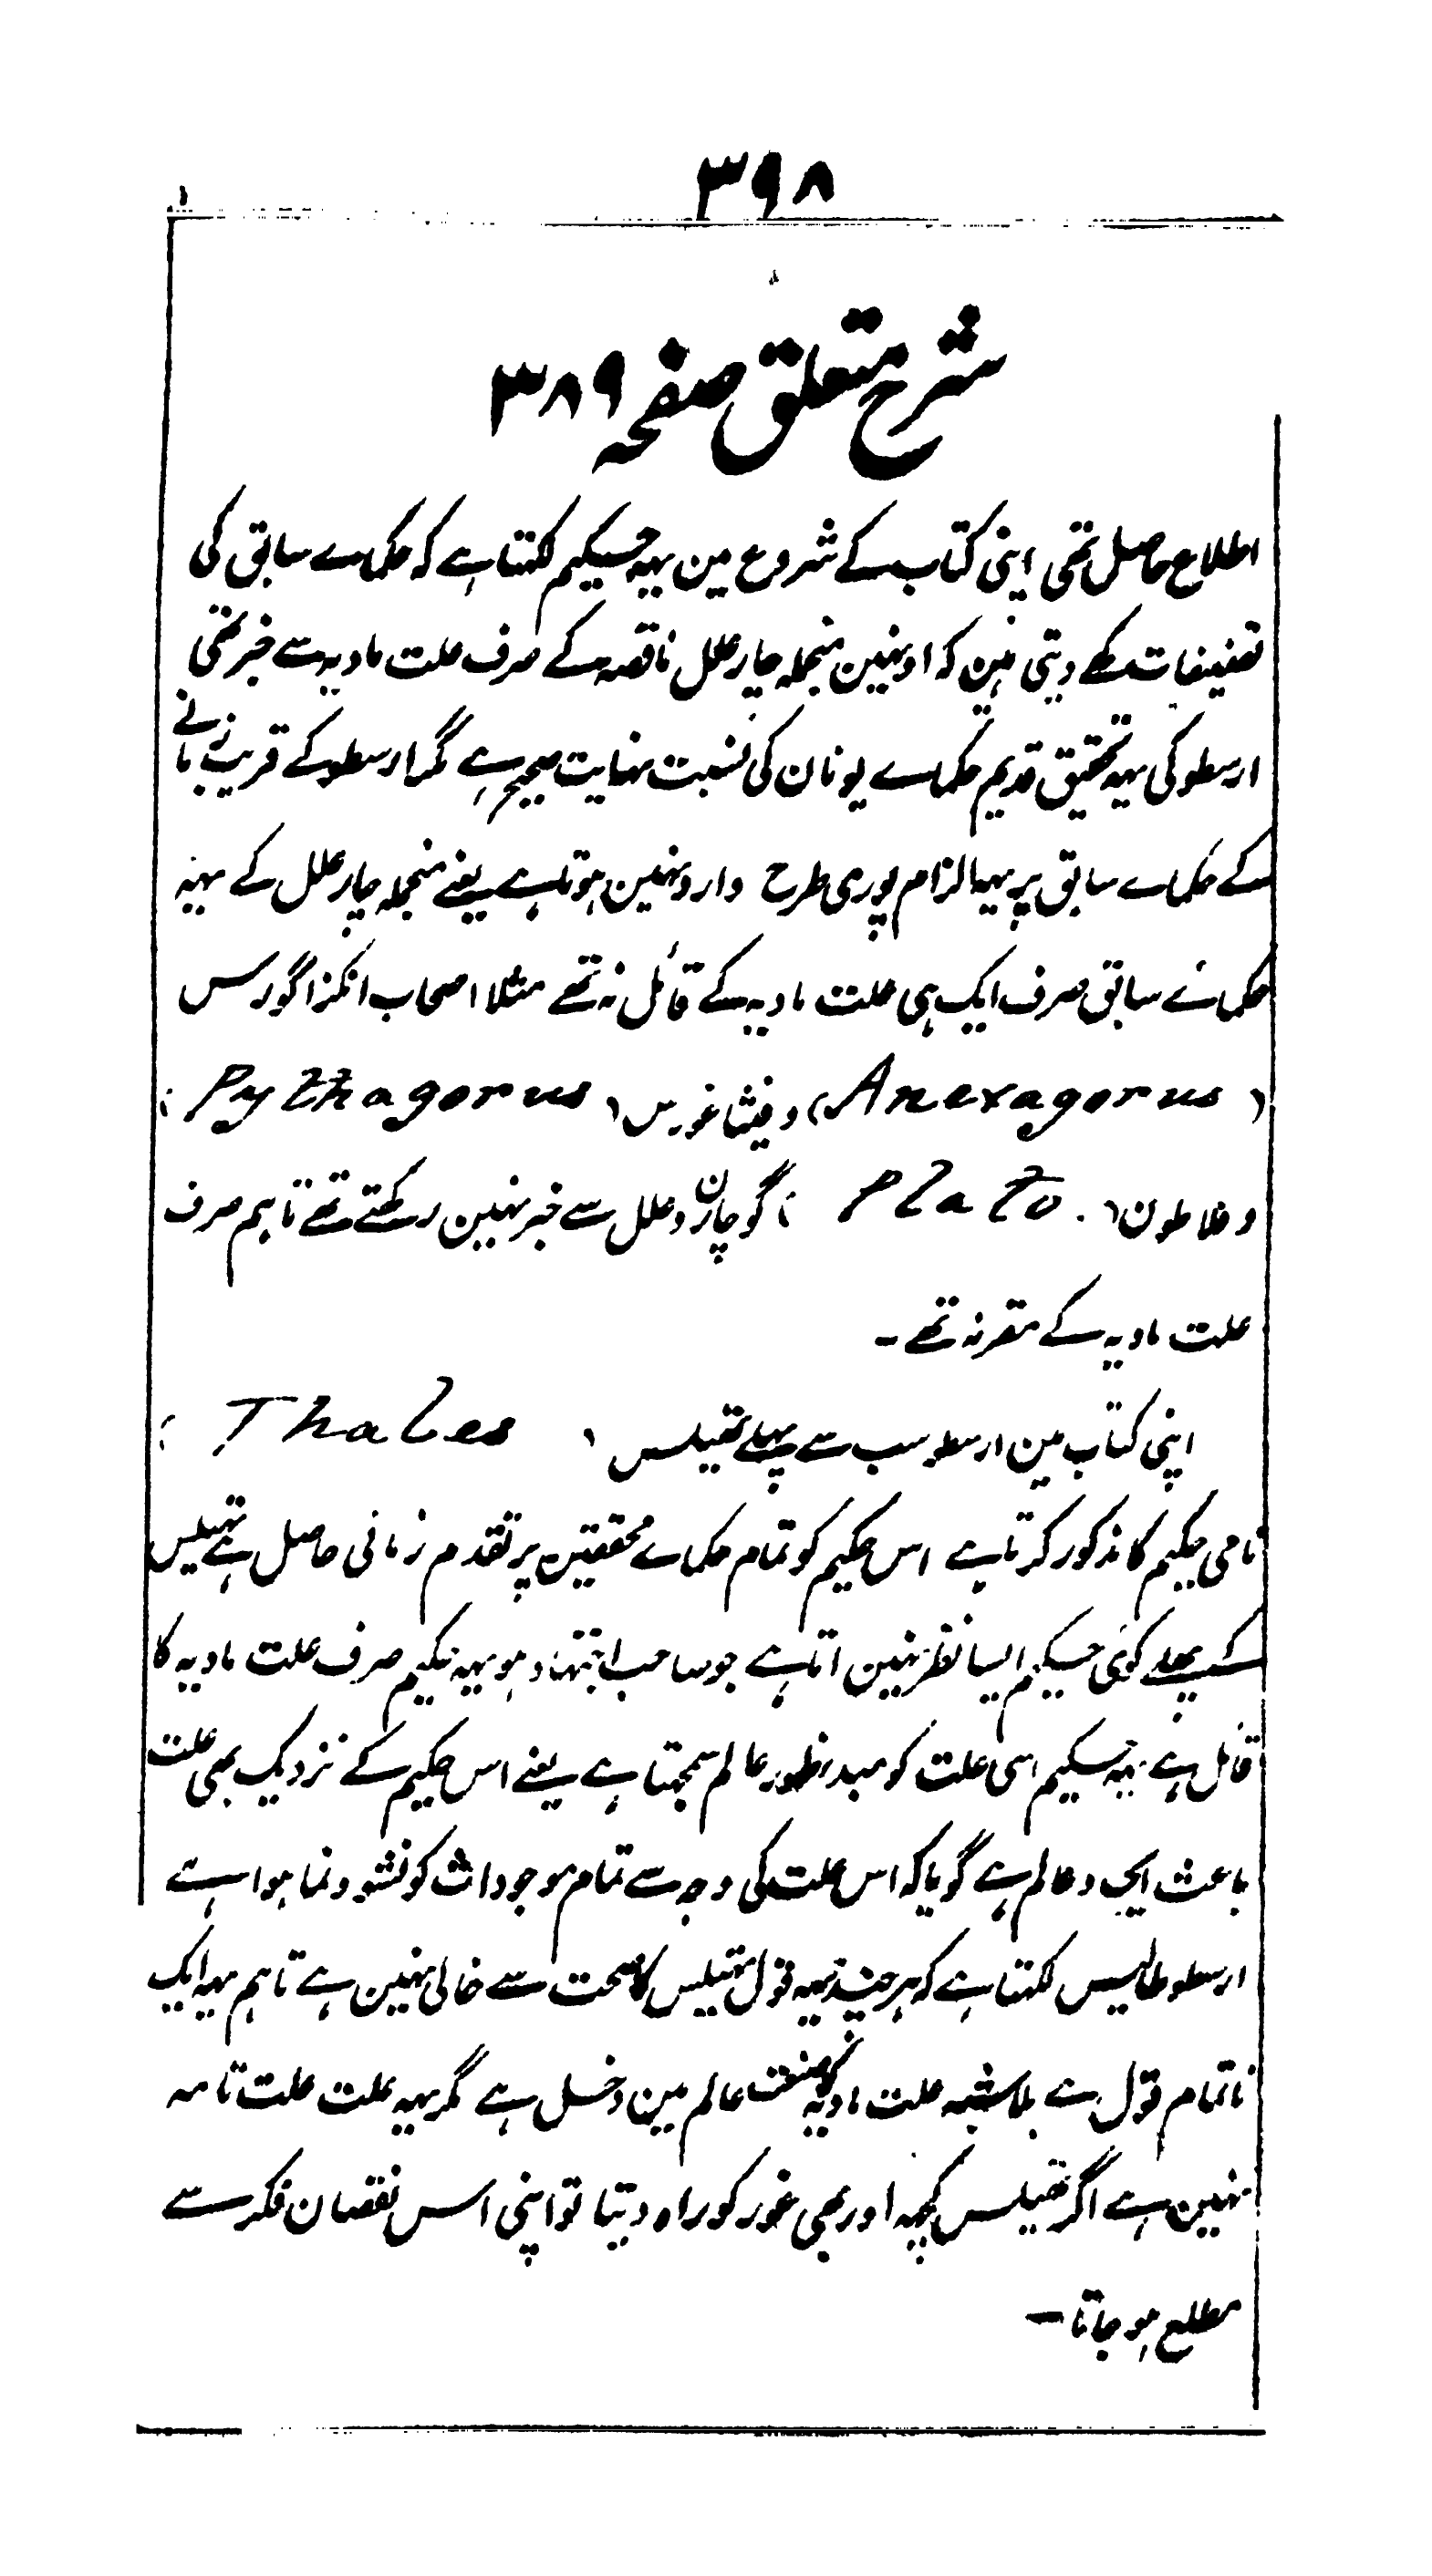 ۳۹۸
شرح متعلق صفحہ ۳۸۹
اطلاع حاصل تھی اپنی کتاب کے شروع مین یہہ حکیم لکھتا ہے کہ حکماے سابق کی
تصنیفات دیتی ہین کہ اونہین منجملہ چار علل ناقصہ کے صرف علت مادیہ سے خبر تھی
ارسطو کی یہہ تحقیق قدیم حکماے یونان کی نسبت نہایت صحیح ہے مگر ارسطو کے قریب زمانے
کے حکماے سابق پر یہہ الزام پوری طرح وارد نہین ہوتا ہے یعنے منجملہ چار علل کے یہہ
حکمائے سابق صرف ایک ہی علت مادیہ کے قائل نہ تھے مثلا اصحاب انکزاگورس
(Anexagorus) وفیثاغورس (Pythagorus)
وفلاطون (Plato) گو چارون علل سے خبر نہین رکھتے تھے تاہم صرف
علت مادیہ کے مقر نہ تھے ۔
اپنی کتاب مین ارسطو سب سے پہلے تھیلس (Thales)
نامی حکیم کا مذکور کرتا ہے اس حکیم کو تمام حکماے محققین پر تقدم زمانی حاصل ہے تھیلس
کے پہلے کوئی حکیم ایسا نظر نہین اتا ہے جو صاحب اجتہاد ہو یہہ حکیم صرف علت مادیہ کا
قائل ہے یہہ حکیم اسی علت کو مبدء ظہور عالم سمجھتا ہے یعنے اس حکیم کے نزدیک یہی علت
باعث ایجاد عالم ہے گویا کہ اس علت کی وجہ سے تمام موجودات کو نشو و نما ہوا ہے
ارسطوطالیس لکھتا ہے کہ ہر چند یہہ قول تھیلس کا صحت سے خالی نہین ہے تاہم یہہ ایک
ناتمام قول ہے بلاشبہہ علت مادیہ کو صنعت عالم مین دخل ہے مگر یہہ علت علت تامہ
نہین ہے اگر تھیلس کچھہ اور بھی غور کو راہ دیتا تو اپنی اس نقصان فکر سے
مطلع ہو جاتا ۔